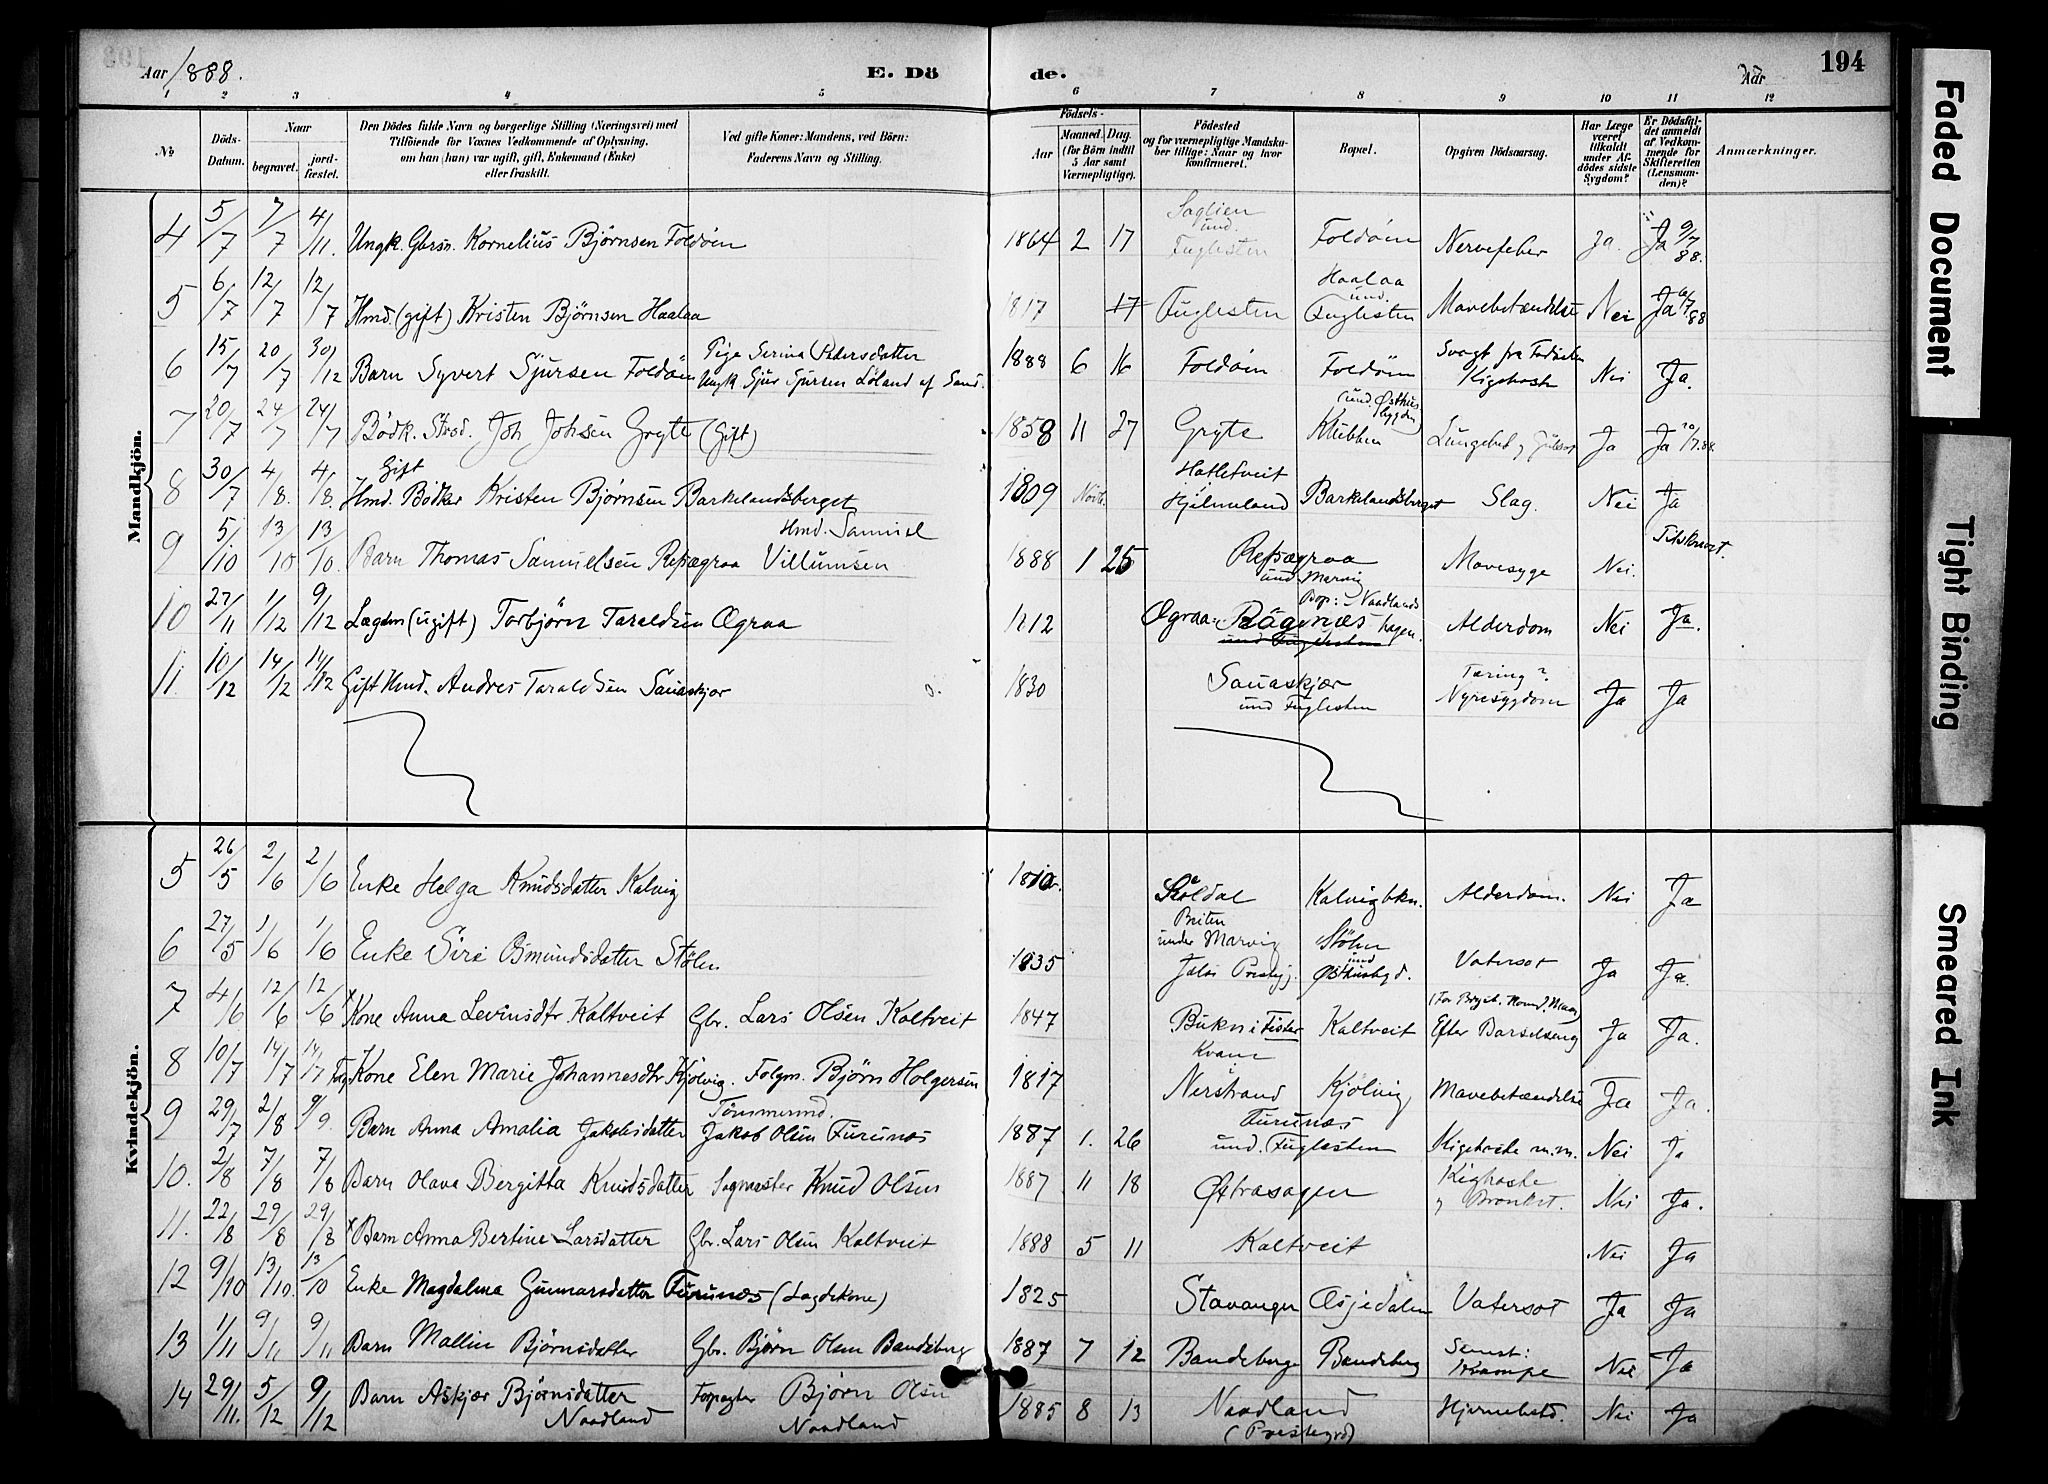 Aar 1888.
E. Dö
de.
Aar
194
1 2 3 4 5 6 7 8 9 10 11 12
No
Döds-Datum.
Naar
begravet.
jord-fæstet.
Den Dödes fulde Navn og borgerlige Stilling (Næringsvei) med
Tilföiende for Voxnes Vedkommende af Oplysning,
om han (hun) var ugift, gift, Enkemand (Enke)
eller fraskilt.
Ved gifte Koner: Mandens, ved Börn:
Faderens Navn og Stilling.
Födsels-
Aar
Maaned. Dag.
(for Börn indtil
5 Aar samt
Værnepligtige).
Födested
og for værnepligtige Mandska-
ber tillige: Naar og hvor
konfirmeret.
Bopæl.
Opgiven Dödsaarsag.
Har Læge
været
tilkaldt
under Af-
dödes sidste
Sygdom?
Er Dödsfal-
det anmeldt
af Vedkom-
mende for
Skifteretten
(Lensman-
den)?
Anmærkninger.
Mandkjön.
4 5/7 7/7 4/11. Ungk. Gbrsn. Kornelius Björnsen Foldöen 1864 2 17 Saglien und. Fuglesten Foldöen Nervefeber Ja. Ja 9/7 88.
5 6/7 12/7 12/7 Hmd. (gift) Kristen Björnsen Haalaa 1817 17 Fuglesten Haalaa und. Fuglesten Mavebetændelse Nei Ja 88
6 15/7 20/7 30/12 Barn Syvert Sjursen Foldöen Pige Serina Pedersdatter
Ungk. Sjur Sjursen Löland af Sand. 1888 6 16 Foldöen Foldöen Svagt fra Födselen Kighoste Nei Ja.
7 20/7 24/7 24/7 Bödk. Strad. Joh Johsen Gryte (Gift) 1858 11 27 Gryte Klubben (und. Östhusbygden) Lungebet. og Ja Ja
8 30/7 4/8. 4/8. Gift
Hmd. Bödker Kristen Björnsen Barkelandsberget 1809 Hatletveit Hjelmeland Barkelandsberget Slag. Nei Ja
9 5/10 13/10 13/10. Barn Thomas Samuelsen Repægraa Hmd. Samuel
Villumsen 1888 1 25 Repægraa und Marvig Mavesyge Nei.
10 27/11 1/12 9/12 Lægdm (ugift) Torbjörn Taraldsen Ægraa 1812 Ægraa: Rägenæs und Fuglesten Bop: Naadlands hagen. Alderdom Nei Ja.
11. 10/12 14/12 14/12 Gift Hmd. Andres Taraldsen Sauaskjær 1830 Sauaskjær
und Fuglesten Tæring? Nyresygdom Ja Ja
Kvindekjön.
5 26/5 2/6 2/6 Enke Helga Knudsdatter Kalvig 1810. Röldal Kalvigbkn. Alderdom. Nei Ja
6 27/5 1/6 1/6 Enke Siri Osmundsdatter Stölen 1835 Briten under Marvig Jelsi Prestgj. Stölen und Östhusbygd. Vatersot Ja Ja.
7 4/6 12/6 12/6 Kone Anna Levinsdtr Kaltveit Gbr. Lars Olsen Kaltveit 1847 Bukn i Fister Kaltveit Efter Barselseng Ja Ja.
8 10/7 14/7 14/7 Kone Elen Marie Johannesdtr Kjölvig. Folgm. Björn Holgersen 1817 Kvam Nerstrand Kjölvig Mavebetændelse Ja Ja.
9 29/7 2/8 9/9. Barn Anna Amalia Jakobsdatter Tömmermd.
Jakob Olsen Furunæs 1887 1. 26 Furunæs
und. Fuglesten Kighoste m.m. Nei Ja
10. 2/8 7/8 7/8 Barn Olava Bergitta Knudsdatter Sagmester Knud Olsen 1887 11 18 Östraasagen Kighoste og Bronkit. Nei Ja.
11. 22/8 29/8 29/8 Barn Anna Bertine Larsdatter Gbr. Lars Olsen Kaltveit 1888 5 11 Kaltveit Nei Ja
12 9/10 13/10. 13/10 Enke Magdalena Gunnarsdatter Furunæs (Lægdekone) 1825 Stavanger Æsjedalen Vatersot Ja Ja
13 1/11 9/11 9/11 Barn Mallin Björnsdatter Gbr. Björn Olsen Bandeberg 1887 7 12 Bandeberge Bandeberg Krampe Nei Ja
14 29/11. 5/12 9/12 Barn Askjær Björnsdatter
Naadland Forpagter Björn Olsen
Naadland 1885 8 13 Naadland
(Prestegrd) Hjernebetd. Nei Ja
Faded Document
Tight Binding
Smeared Ink